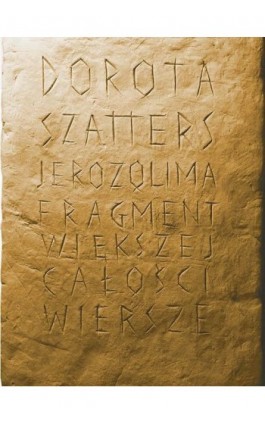 DOROTA
SZATTERS
JEROZOLIMA
FRAGMENT
WIĘKSZEJ
CAŁOŚCI
WIERSZE